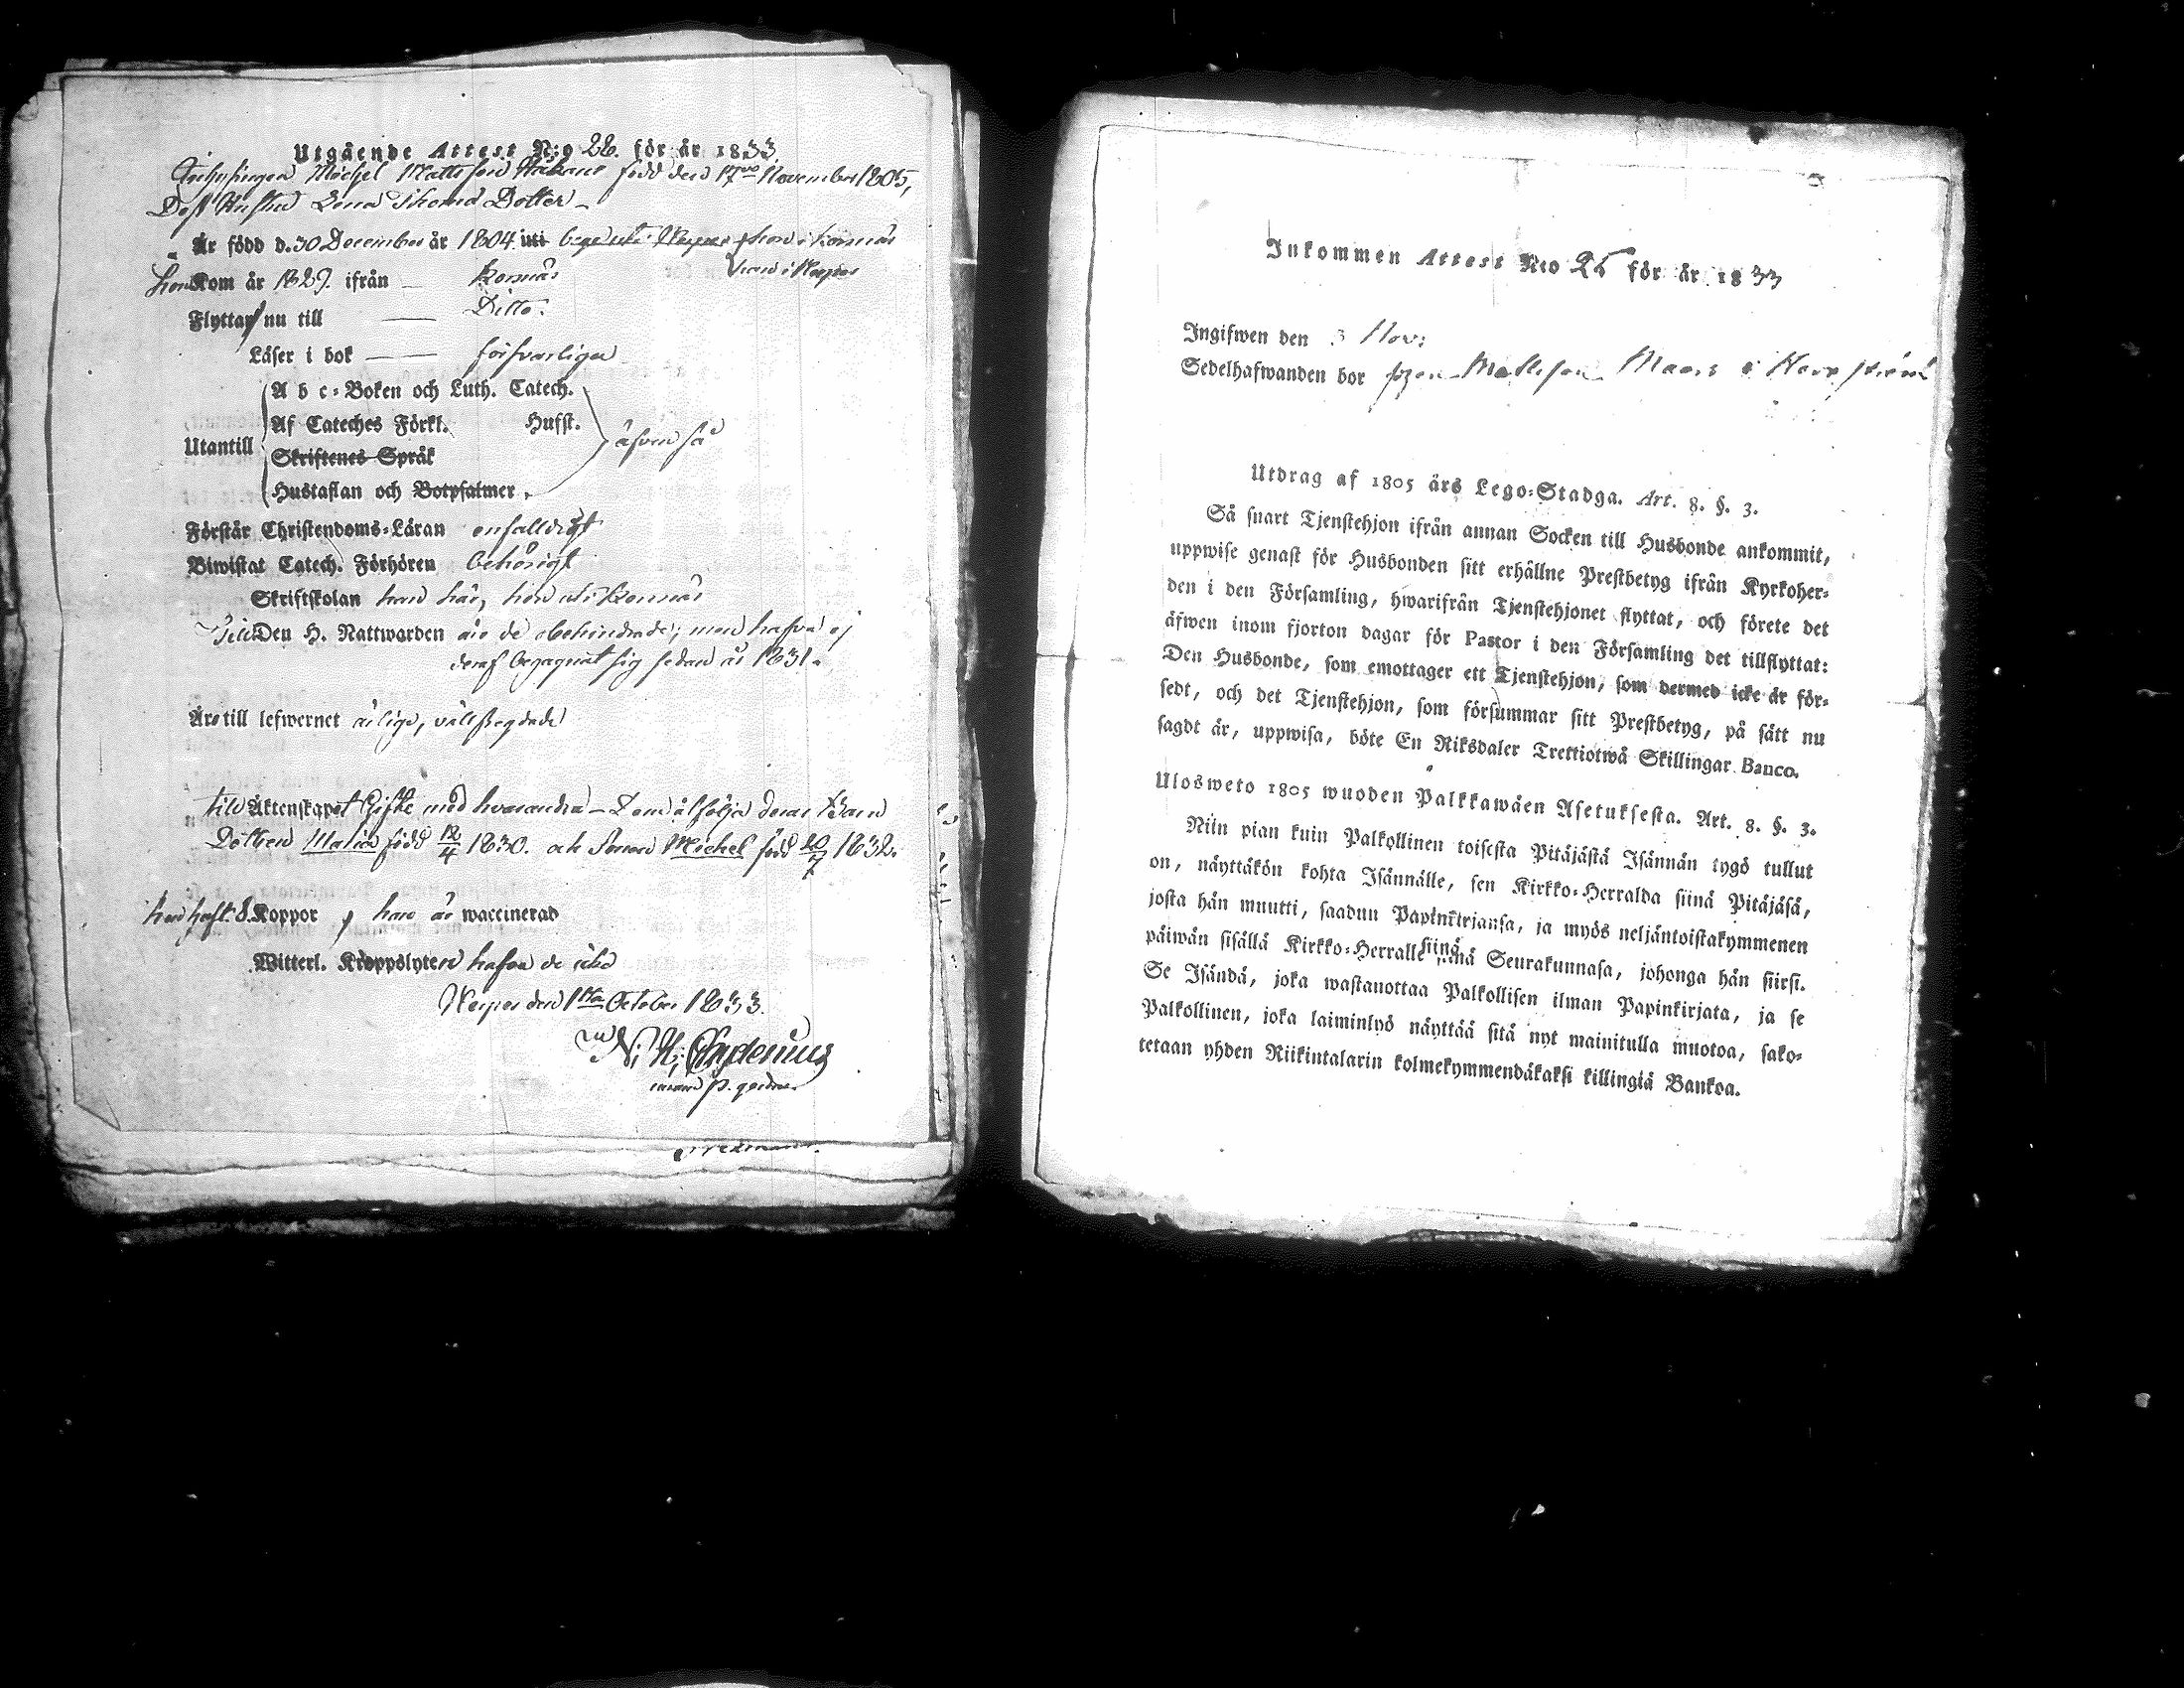 Utgående Attest N:o 22. för år 1833.
Inhysingen Michel Mattsson född den 17de November 1805,
Dess Hustru Lena Simons Dotter
Är född d. 30 December år 1804 uti hon i Korsnäs
han i Nerpes
hon Kom år 1829. ifrån — Korsnäs
Flytta nu till — Ditto.
Läser i bok — försvarliga
A b c-Boken och Luth. Catech.
Af Cateches Förkl. Hufst.
Utantill äfven så
Skriftenes Språk
Hustaflan och Botpsalmer.
Förstår Christendoms-Läran enfalldigt
Biwistat Catech. Förhören behörigt
Skriftskolan han här, hon uti Korsnäs
Till Den H. Nattwarden äro de obehindrade; men hafva ej
deraf begagnat sig sedan år 1831.
Äro till lefwernet ärliga, välfregdade
till Äktenskapet Gifte med hvarandra — Dem åtfölja deras Barn
Dottren Maria född 12/4 1830. och Sonen Michel född 20/7 1832.
haft d. Koppor, är waccinerad
Witterl. Kroppslyten hafva de icke
Nerpes den 1sta October 1833.
N. H. Chydenius
Inkommen Attest N:o 25 för år 1833
Ingifwen den 3 Nov:
Sedelhafwanden bor Mattsson i
Utdrag af 1805 års Lego-Stadga. Art. 8. §. 3.
Så snart Tjenstehjon ifrån annan Socken till Husbonde ankommit,
uppwise genast för Husbonden sitt erhållne Prestbetyg ifrån Kyrkoher-
den i den Församling, hwarifrån Tjenstehjonet flyttat, och förete det
äfwen inom fjorton dagar för Pastor i den Församling det tillflyttat:
Den Husbonde, som emottager ett Tjenstehjon, som dermed icke är för-
sedt, och det Tjenstehjon, som försummar sitt Prestbetyg, på sätt nu
sagdt är, uppwisa, böte En Riksdaler Trettiotwå Skillingar Banco.
Ulosweto 1805 wuoden Palkkawäen Asetuksesta. Art. 8. §. 3.
Niin pian kuin Palkollinen toisesta Pitäjästä Isännän tygö tullut
on, näyttäkön kohta Isännälle, sen Kirkko-Herralda siinä Pitäjäsä,
josta hän muutti, saadun Papinkirjansa, ja myös neljäntoistakymmenen
päiwän sisällä Kirkko-Herralle siinä Seurakunnasa, johonga hän siirsi.
Se Isändä, joka wastanottaa Palkollisen ilman Papinkirjata, ja se
Palkollinen, joka laiminlyö näyttää sitä nyt mainitulla muotoa, sako-
tetaan yhden Riikintalarin kolmekymmendäkaksi killingiä Bankoa.